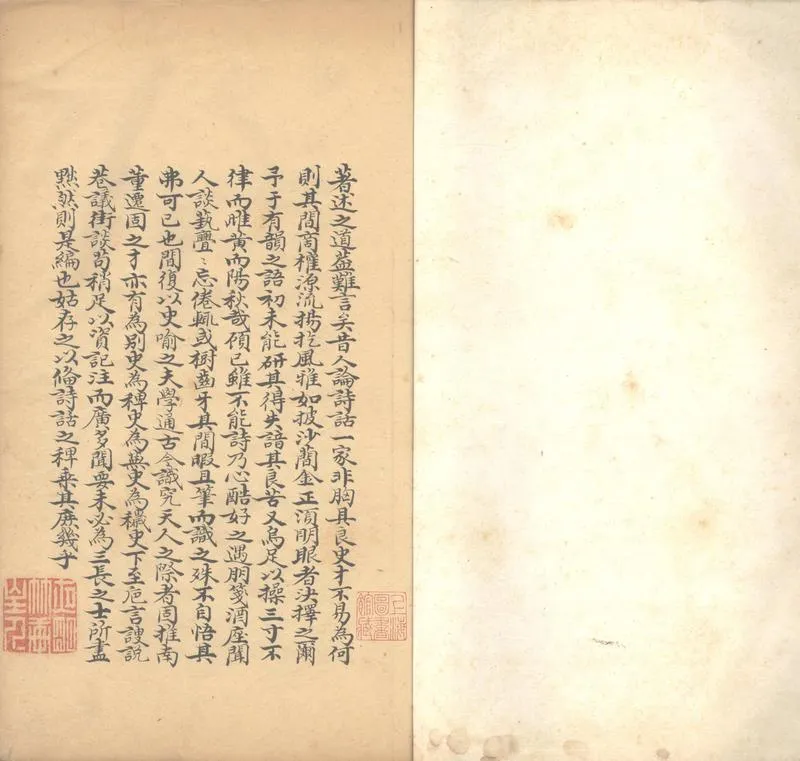 著述之道葢難言矣昔人論詩話一家非胸具良史才不易為何
則其間商榷源流揚扢風雅如披沙蕳金正須明眼者決擇之爾
予于有韻之語初未能研其得失諳其良苦又烏足以操三寸不
律而雌黄而陽秋哉碩已雖不能詩乃心酷好之遇朋箋酒座聞
人談蓺亹〻忘倦輒或樹齒牙其間暇且筆而識之殊不自悟其
弗可已也間復以史喻之夫學通古今識究天人之際者固推南
董遷固之才亦有為別史為稗史為㒷史為穢史下至卮言謏說
巷議街談苟稍足以資記注而廣多聞要未必為三長之士所盡
黙然則是編也姑存之以俻詩話之稗乗其庶幾乎
上海圖書館藏